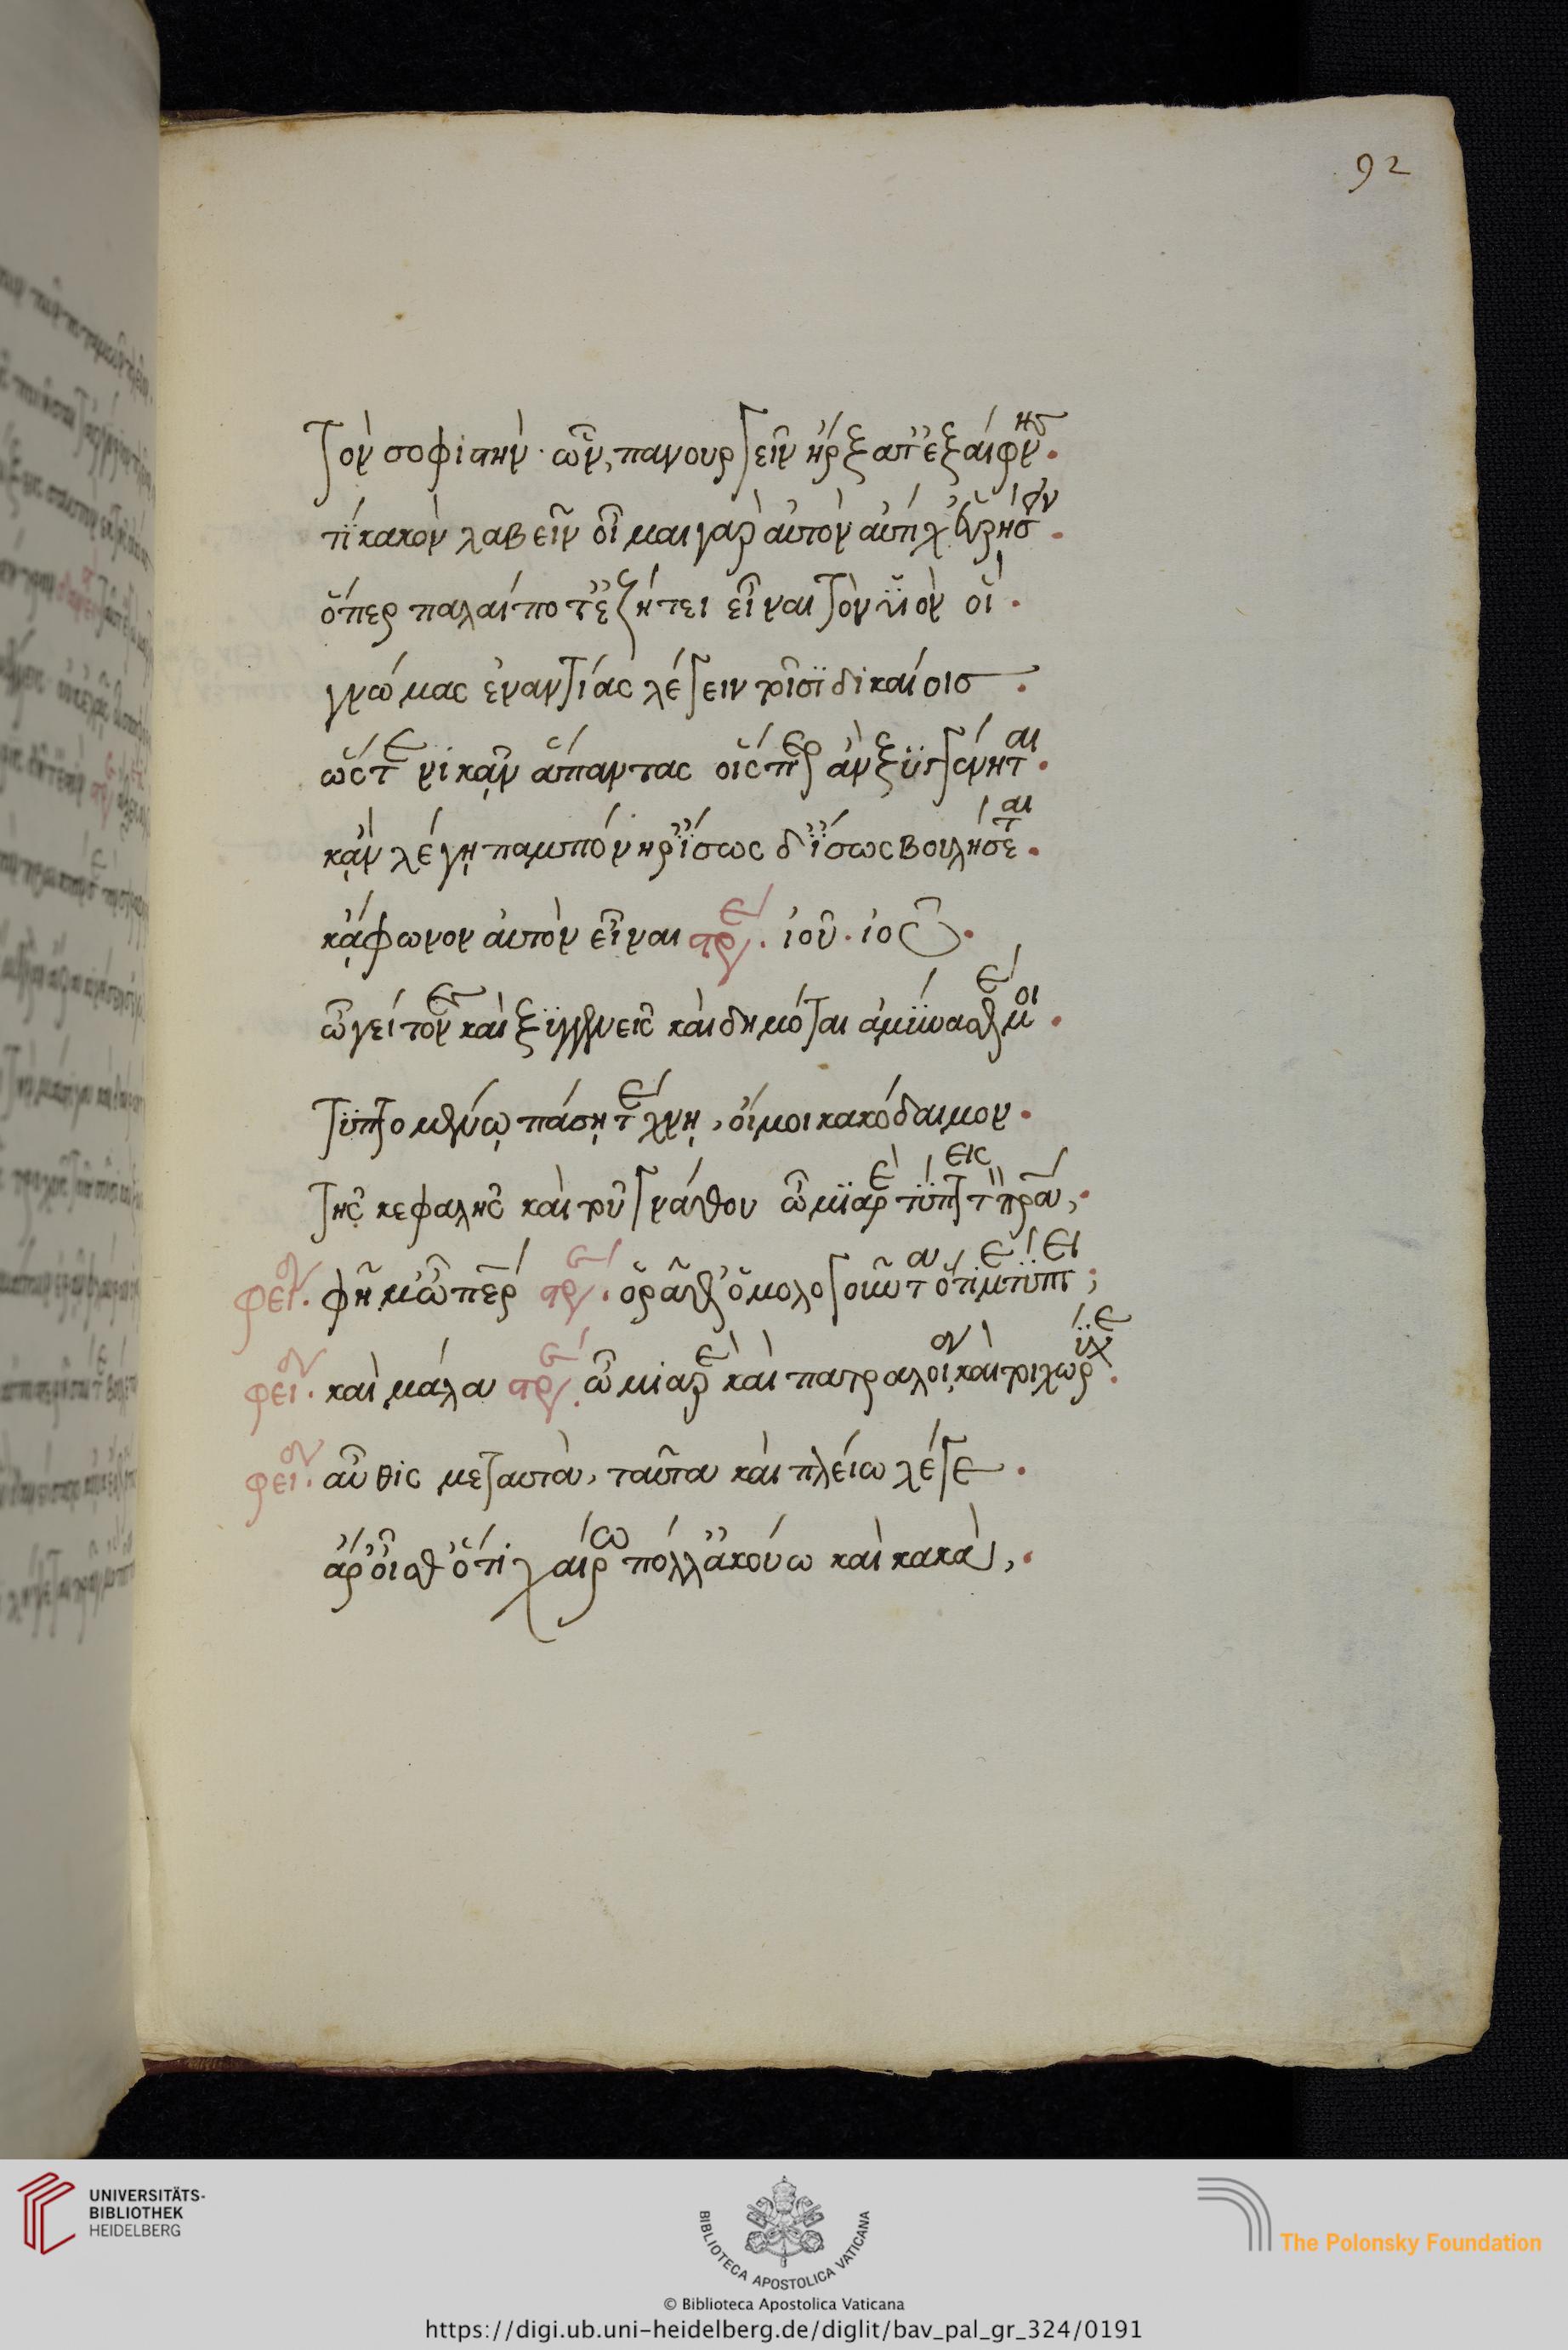 92
τὸν σοφιστὴν· ὧν, πανουργεῖν ἤρξατ' ἐξαίφνης.
τί κακὸν λαβεῖν οἶμαι γὰρ αὐτὸν αὐτίχ' εὑρήσειν.
ὅπερ πάλαι ποτ' ἐζήτει εἶναι τὸν υἱὸν οἱ.
γνώμας ἐναντίας λέγειν τοῖσι δικαίοις.
ὥστε νικᾶν ἅπαντας οἷσπερ ἂν ξυγγένηται.
κἂν λέγῃ παμπόνηρ' ἴσως δ' ἴσως βουλήσεται.
κἄφωνον αὐτὸν εἶναι στρε. ἰοῦ. ἰοῦ.
ὦ γείτονες καὶ ξυγγενεῖς καὶ δημόται ἀμυνάσθε μοι.
τυπτομένῳ πάσῃ τέχνῃ, οἴμοι κακόδαιμον.
τῆς κεφαλῆς καὶ τοῦ γνάθου ὦ μιαρὲ τύπτεις τὸν πρα,.
φει. φῆμ' ὦ πέρ στρε. ὁρᾶθ' ὁμολογοῦντα ὅτι με τύπτει;
φει. καὶ μάλα στρε. ὦ μιαρὲ καὶ πατραλοῖα καὶ τοιχωρύχε.
φει. αὖθις με ταυτὰ, ταῦτα καὶ πλείω λέγε.
ἆρ' οἶσθ' ὅτι χαίρω πόλλ' ἀκούω καὶ κακὰ,.
UNIVERSITÄTS-
BIBLIOTHEK
HEIDELBERG
BIBLIOTECA APOSTOLICA VATICANA
The Polonsky Foundation
© Biblioteca Apostolica Vaticana
https://digi.ub.uni-heidelberg.de/diglit/bav_pal_gr_324/0191